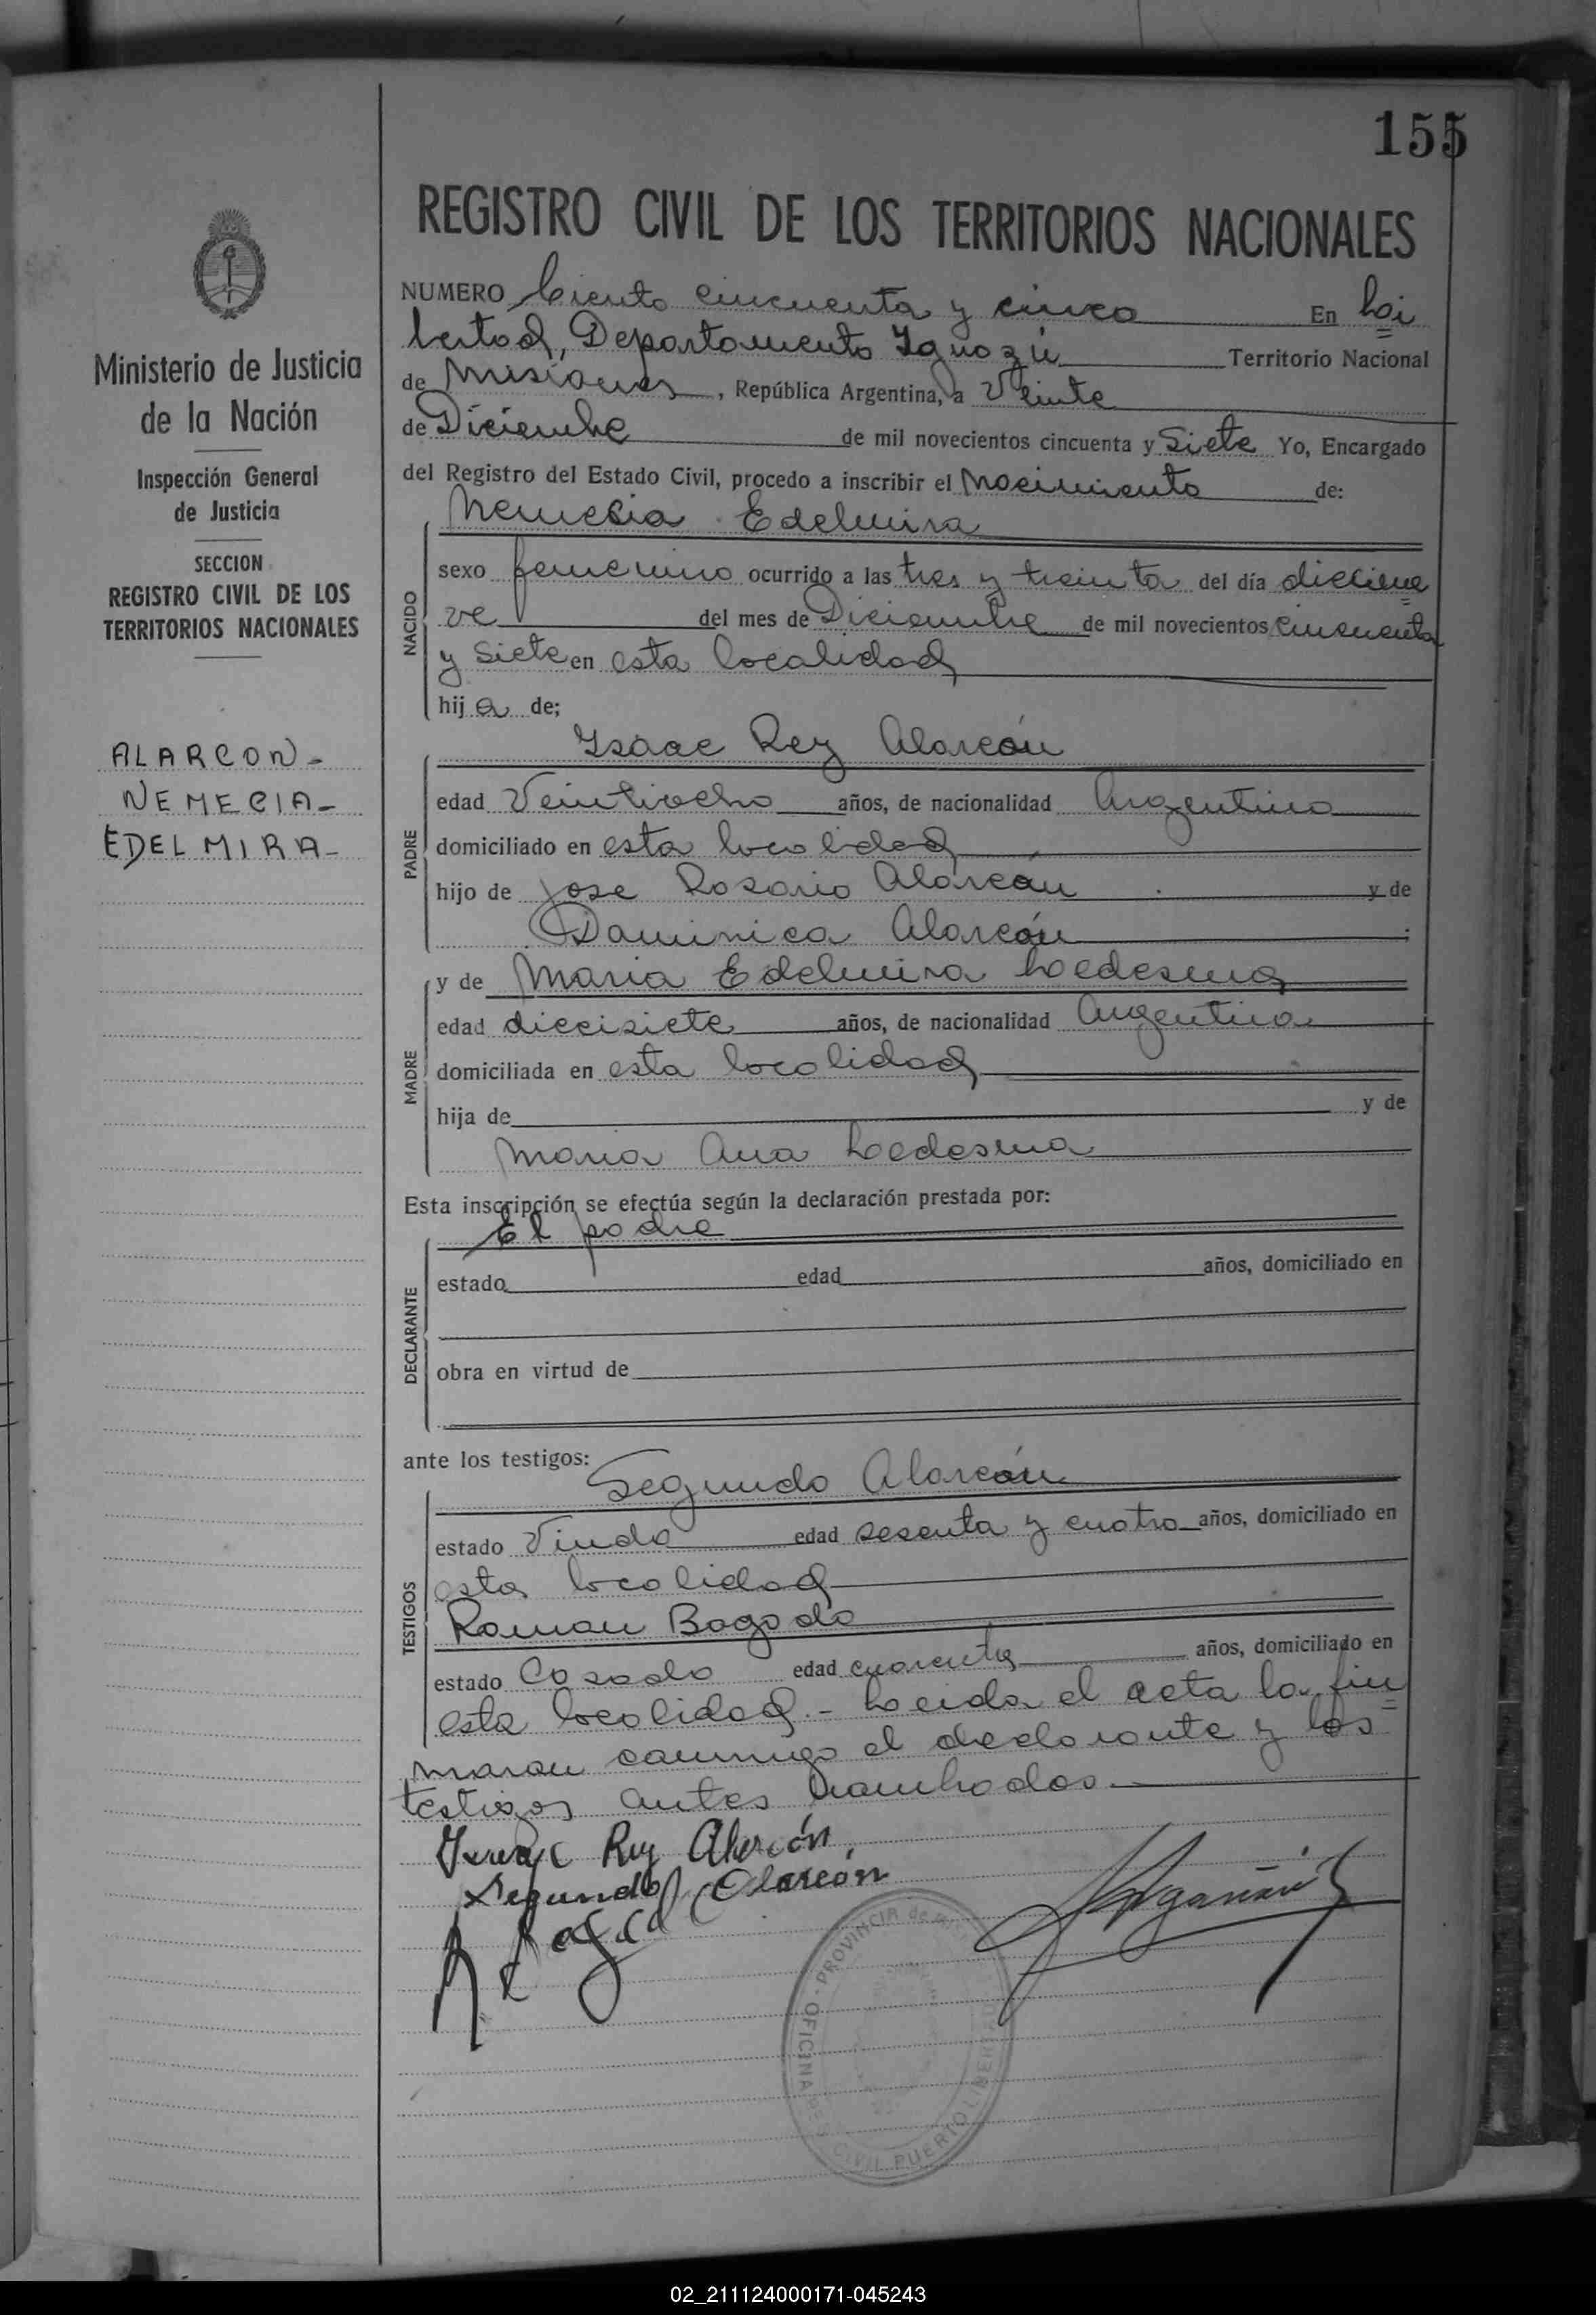 155
REGISTRO CIVIL DE LOS TERRITORIOS NACIONALES
Ministerio de Justicia
de la Nación
Inspección General
de Justicia
SECCION
REGISTRO CIVIL DE LOS
TERRITORIOS NACIONALES
ALARCON-
NEMECIA-
EDELMIRA-
NUMERO Ciento cincuenta y cinco En Li
bertad, Departamento Iguazú Territorio Nacional
de Misiones, República Argentina, a Veinte
de Diciembre de mil novecientos cincuenta y Siete Yo, Encargado
del Registro del Estado Civil, procedo a inscribir el Nacimiento de:
Nemesia Edelmira
NACIDO
sexo femenino ocurrido a las tres y treinta del día diecinue
ve del mes de Diciembre de mil novecientos cincuenta
y Siete en esta localidad
hija de;
Isaac Rey Alarcón
PADRE
edad Veintiocho años, de nacionalidad Argentino
domiciliado en esta localidad
hijo de Jose Rosario Alarcón y de
Daminica Alarcón
MADRE
y de Maria Edelmira Ledesma
edad diecisiete años, de nacionalidad Argentina
domiciliada en esta localidad
hija de y de
Maria Ana Ledesma
Esta inscripción se efectúa según la declaración prestada por:
El padre
DECLARANTE
estado edad años, domiciliado en
obra en virtud de
ante los testigos:
Segundo Alarcón
TESTIGOS
estado Viudo edad sesenta y cuatro años, domiciliado en
esta localidad
Roman Bogado
estado Casado edad cuarenta años, domiciliado en
esta localidad.- Leida el acta la fir
maran conmigo el declarante y los
testigos antes nombrados.
Rey Alarcón
Segundo Alarcón
OFICINA CIVIL PUERTO LIBERTAD - PROVINCIA de
02_211124000171-045243